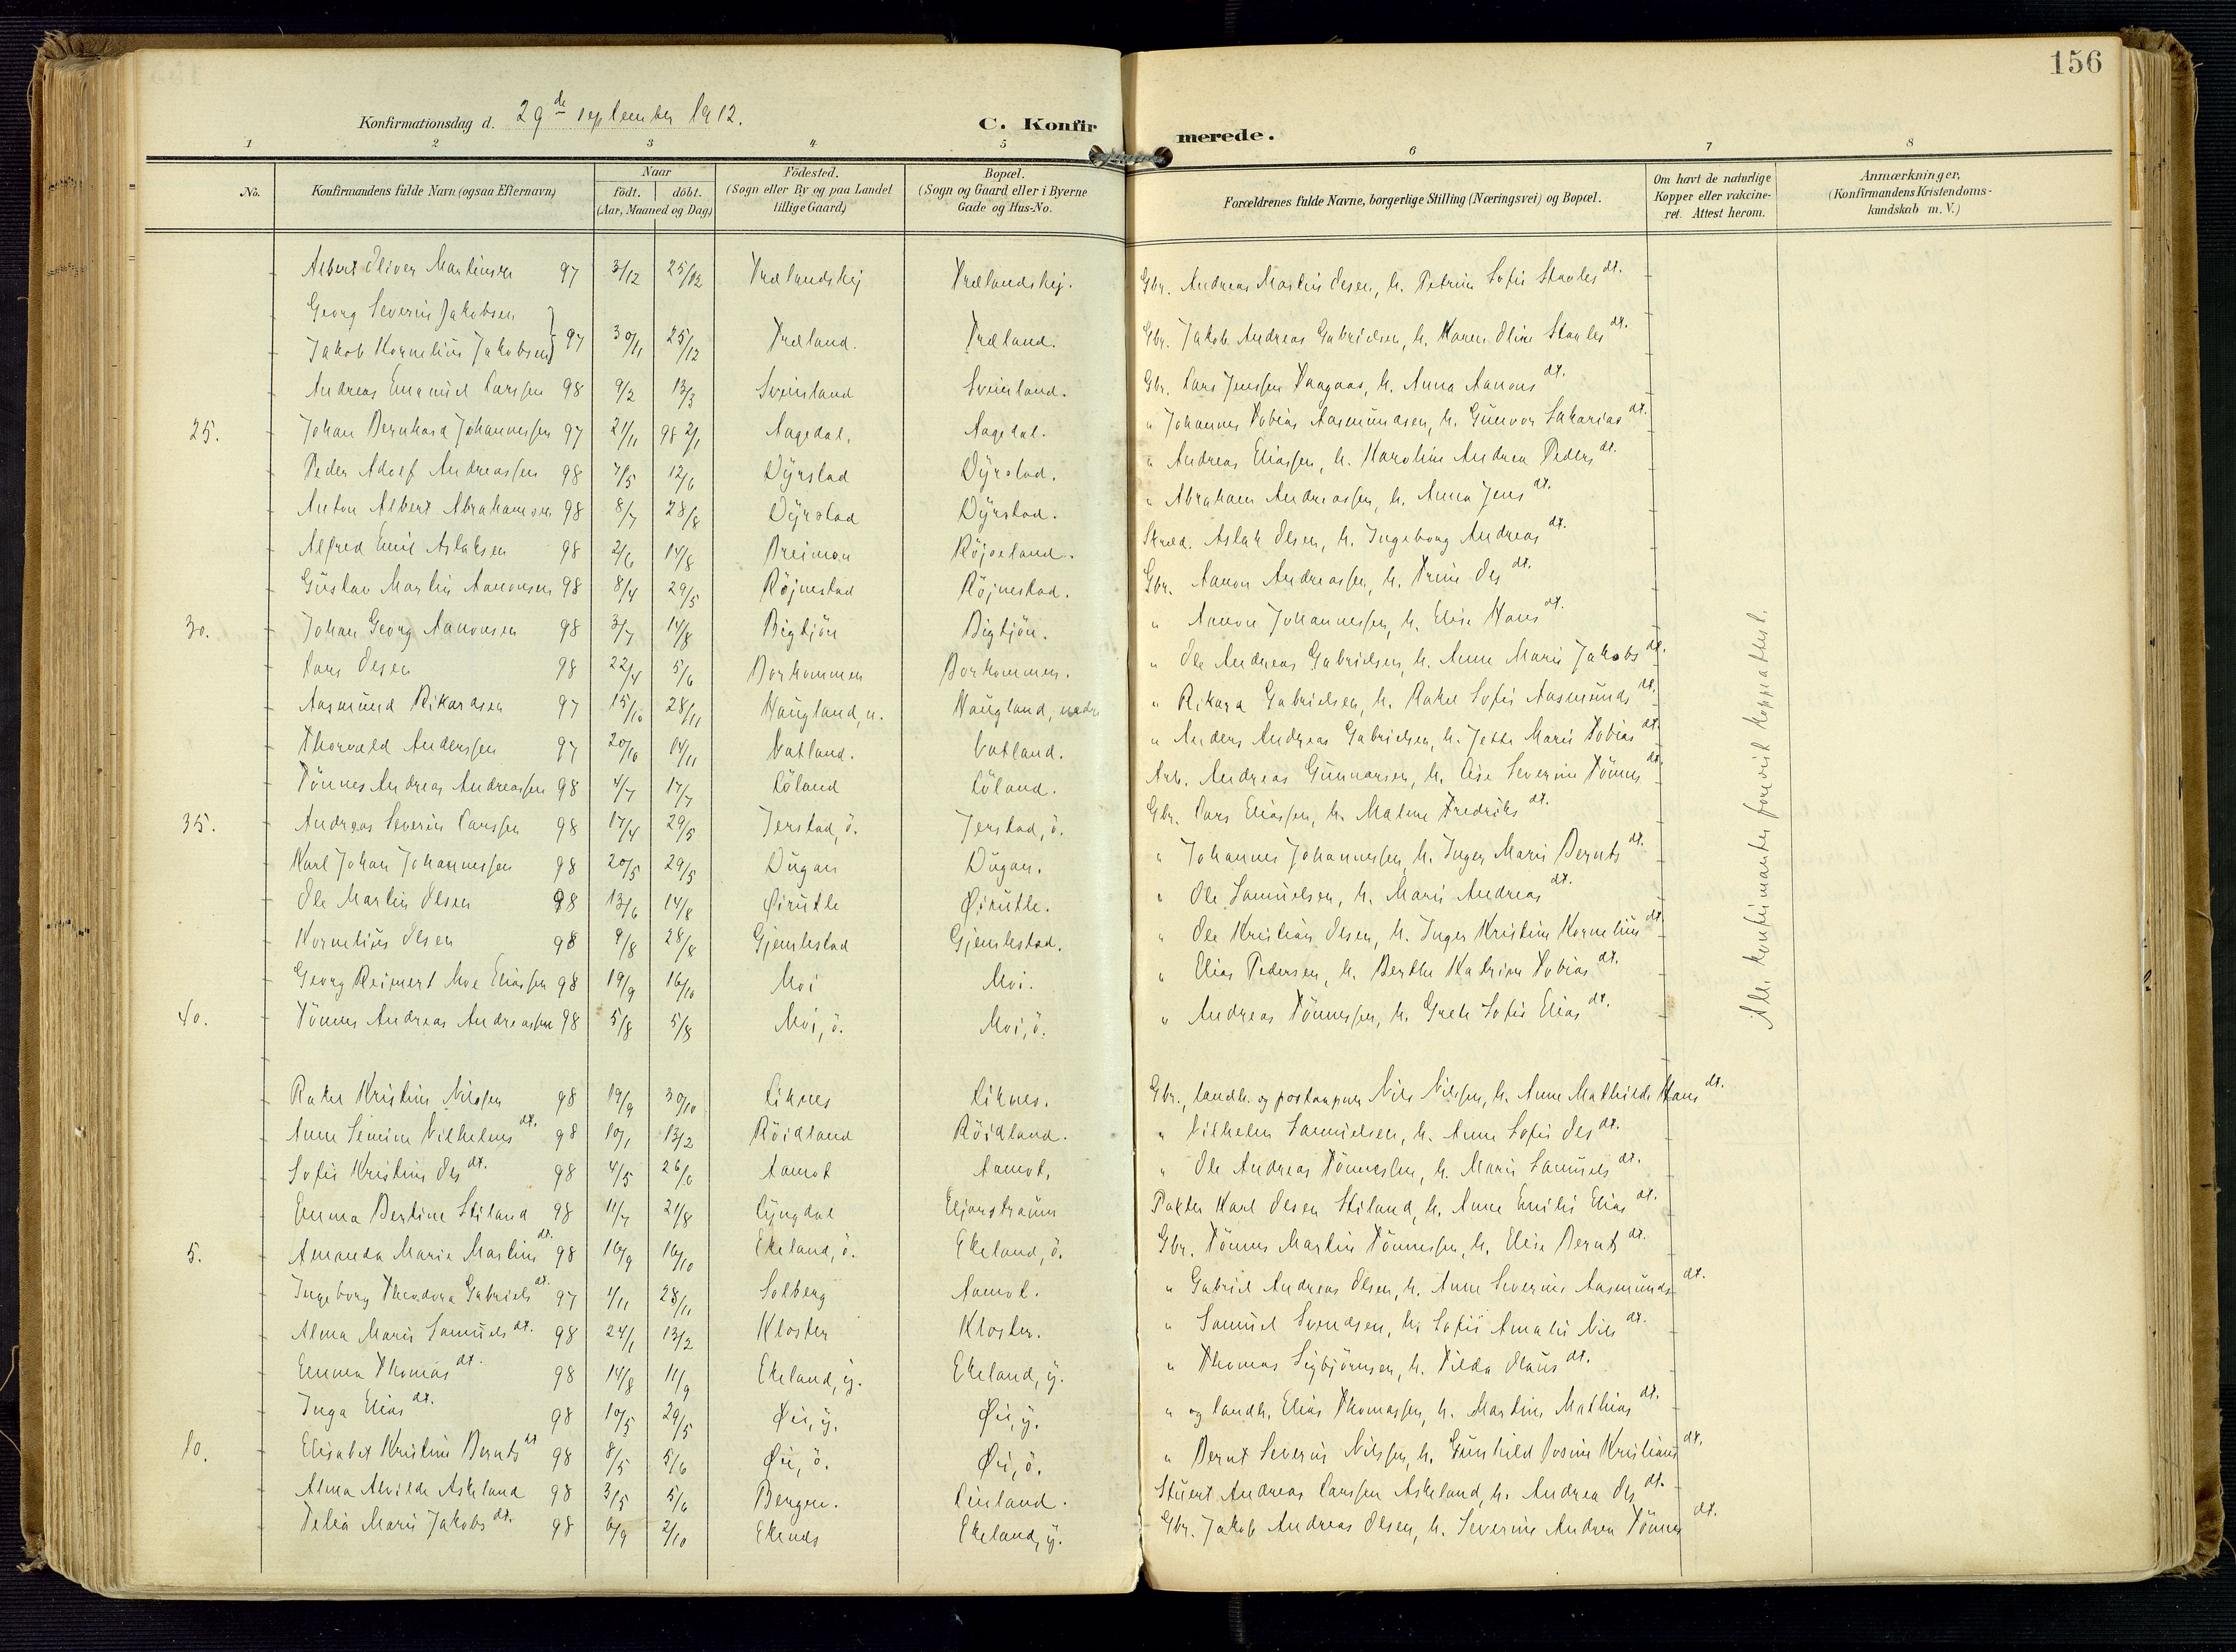 156
Konfirmationsdag d. 29de september 1912.
C. Konfirmerede.
1 2 3 4 5 6 7 8
No.
Konfirmandens fulde Navn (ogsaa Efternavn)
Naar
födt. döbt.
(Aar, Maaned og Dag)
Födested.
(Sogn eller By og paa Landet
tillige Gaard)
Bopæl.
(Sogn og Gaard eller i Byerne
Gade og Hus-No.
Forældrenes fulde Navne, borgerlige Stilling (Næringsvei) og Bopæl.
Om havt de naturlige
Kopper eller vakcine-
ret. Attest herom.
Anmærkninger,
(Konfirmandens Kristendoms-
kundskab m. V.)
Albert Oliver Martinsen 97 3/12 25/12 Trælandshej Trælandshej. Gbr. Andreas Martin Olsen, h. Petrine Sofie Staales dt.
Georg Severin Jakobsen
Jakob Kornelius Jakobsen } 97 30/11 25/12 Træland. Træland. Gbr. Jakob Andreas Gabrielsen, h. Karen Oline Staales dt.
Andreas Emanuel Larssen 98 9/2 13/3 Sveinland Sveinland. Gbr. Lars Jenssen Haagaas, h. Anna Aanons dt.
25. Johan Bernhard Johannessen 97 21/11 98 2/1 Aagedal. Aagedal. " Johannes Tobias Aasmundsen, h. Gunvor Sakarias dt.
Peder Adolf Andreassen 98 7/5 12/6 Dyrstad Dyrstad. " Andreas Eliassen, h. Karoline Andrea Peders dt.
Anton Albert Abrahamsen 98 8/7 28/8 Dyrstad Dyrstad. " Abraham Andreassen, h. Anna Jens dt.
Alfred Emil Aslaksen 98 2/6 14/8 Breimon Röjseland. Skræd. Aslak Olsen, h. Ingeborg Andreas dt.
Gustav Martin Aanonsen 98 8/4 29/5 Röjnestad Röjnestad. Gbr. Aanon Andreassen, h. Trine Ols dt.
30. Johan Georg Aanonsen 98 3/7 14/8 Bigtjön Bigtjön. " Aanon Johannessen, h. Elise Hans dt.
Lars Olsen 98 22/4 5/6 Borkommen Borkommen. " Ole Andreas Gabrielsen, h. Anne Marie Jakobs dt.
Aasmund Rikardsen 97 15/10 28/11 Haugland, n. Haugland, nedre " Rikard Gabrielsen, h. Rakel Sofie Aasmunds dt.
Thorvald Anderssen 97 20/10 14/11 Vatland. Vatland. " Anders Andreas Gabrielsen, h. Jette Marie Tobias dt.
Tönnes Andreas Andreassen 98 4/7 17/7 Löland Löland. Arb. Andreas Gunnarsen, h. Lise Severine Tönnes dt.
35. Andreas Severin Larssen 98 17/4 29/5 Jerstad, ö. Jerstad, ö. Gbr. Lars Eliassen, h. Malene Fredriks dt.
Karl Johan Johannessen 98 20/5 29/5 Dugan Dugan. " Johannes Johannessen, h. Inger Marie Bernts dt.
Ole Martin Olsen 98 13/6 14/8 Öisutte Öisutte. " Ole Samuelsen, h. Marie Andreas dt.
Kornelius Olsen 98 9/8 28/8 Gjemlestad Gjemlestad. " Ole Kristian Olsen, h. Inger Kristine Kornelius dt.
Georg Reinert Moe Eliassen 98 19/9 16/10 Moi Moi. " Elias Pedersen, h. Berthe Katrine Tobias dt.
40. Tönnes Andreas Andreassen 98 5/8 5/8 Moi, ö. Moi, ö. " Andreas Tönnessen, h. Grete Sofie Elias dt.
Alle konfirmanter foreviste koppeattest.
Rakel Kristine Nilssen 98 19/9 30/10 Liknes Liknes. Gbr., landh. og postaapner Nils Nilssen, h. Anne Mathilde Hans dt.
Anne Semine Vilhelms dt. 98 10/1 13/2 Röidland Röidland. " Vilhelm Samuelsen, h. Anne Sofie Ols dt.
Sofie Kristine Ols dt. 98 4/5 26/6 Aamot Aamot. " Ole Andreas Tönnessen, h. Marie Samuels dt.
Emma Bertine Stiland 98 11/7 21/8 Lyngdal Eljarstraum Pakter Karl Olsen Stiland, h. Anne Emilie Elias dt.
5. Amanda Marie Martins dt. 98 16/9 16/10 Ekeland, ö. Ekeland, ö. Gbr. Tönnes Martin Tönnessen, h. Elise Bernts dt.
Ingeborg Theodora Gabriels dt. 97 4/11 28/11 Solberg Aamot. " Gabriel Andreas Olsen, h. Anne Severine Aasmunds dt.
Alma Marie Samuels dt. 98 24/1 13/2 Kloster Kloster. " Samuel Svendsen, h. Sofie Amalie Nils dt.
Emma Thomas dt. 98 14/8 11/9 Ekeland, y. Ekeland, y. " Thomas Sigbjörnsen, h. Tilda Olaus dt.
Inga Elias dt. 98 10/5 29/5 Øie, y. Øie, y. " og landh. Elias Thomassen, h. Martine Mathias dt.
10. Elisabet Kristine Bernts dt 98 8/5 5/6 Øie, ö. Øie, ö. " Bernt Severin Nilssen, h. Gunhild Josine Kristians dt.
Alma Alvilde Askeland 98 3/5 5/6 Bergen. Linland. Stuert Andreas Larssen Askeland, h. Andrea Ols dt.
Telia Marie Jakobs dt. 98 6/9 2/10 Ekends Ekeland, y. Gbr. Jakob Andreas Olsen, h. Severine Andrea Tönnes dt.